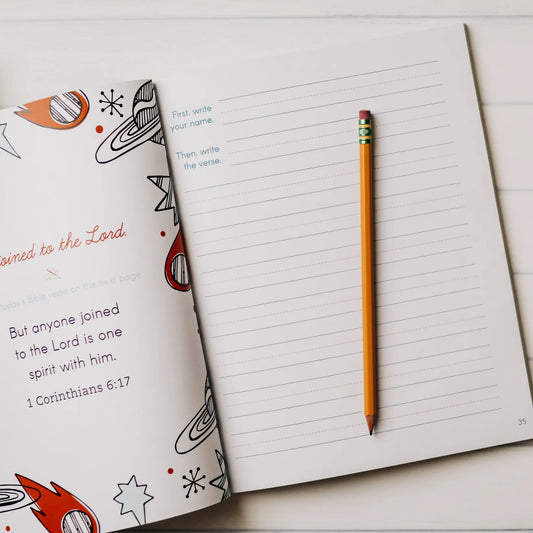 joined to the Lord.
today's Bible verse on the next page.
But anyone joined
to the Lord is one
spirit with him.
1 Corinthians 6:17
First, write
your name.
Then, write
the verse.
35